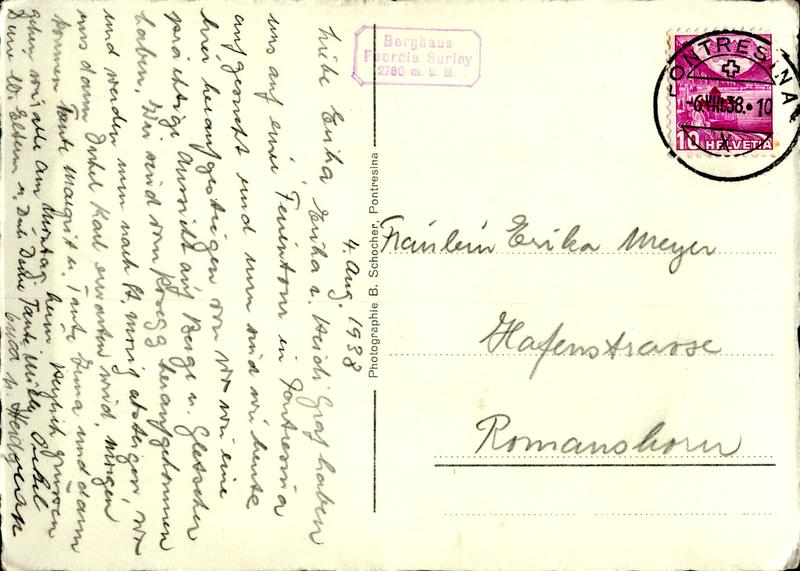 4. Aug. 1938
Liebe Erika, Erika u. Heidi Graf haben
uns auf einer Ferientour in Pontresina
aufgesucht und nun sind wir heute
hier heraufgestiegen von wo wir eine
prächtige Aussicht auf Berge u. Gletscher
haben. Wir sind von heraufgekommen
und werden nun nach St. Moritz absteigen, wo
uns dann Onkel Karl erwarten wird. Morgen
kommen Tante Margrit u. Tante und dann
gehen wir alle am Montag heim. Herzlich grüssen
Eltern u. Dich Deine Tante Onkel
Erika u. Heidi Graf
Berghaus
Fuorcla Surlej
2760 m. ü. M.
Photographie B. Schocher, Pontresina
PONTRESINA
-6.VIII.38.-10
X
10 HELVETIA
Fräulein Erika Meyer
Hafenstrasse
Romanshorn